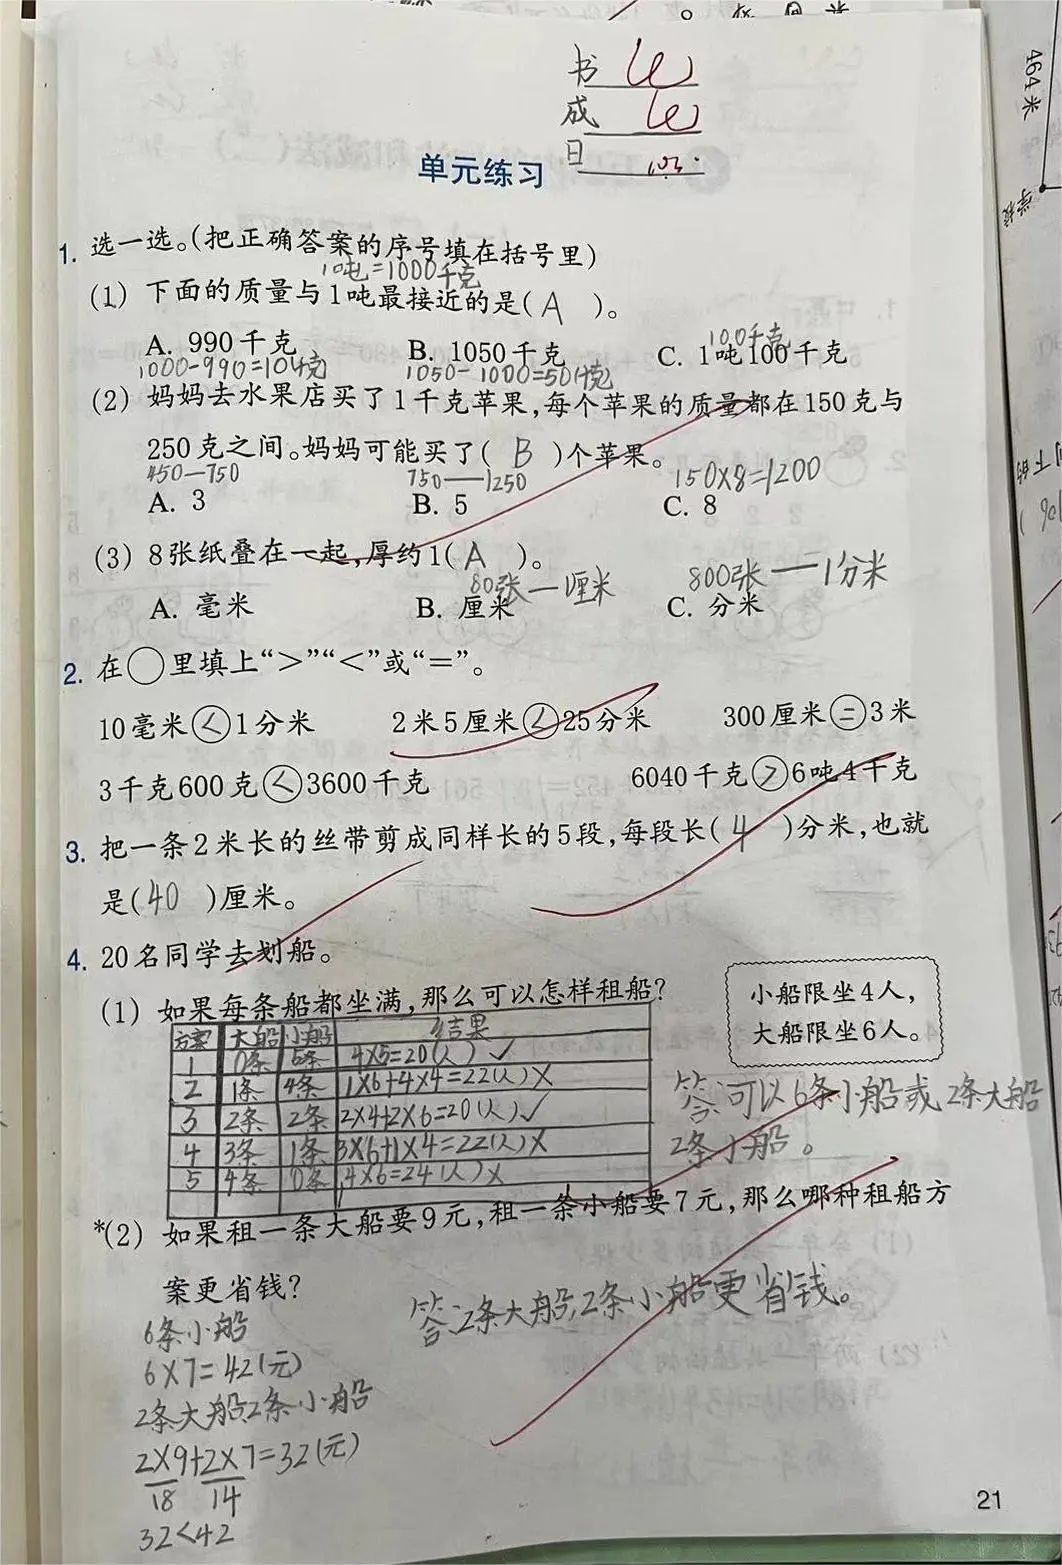 书
成
日
单元练习
1. 选一选。(把正确答案的序号填在括号里)
10吨=1000千克
(1) 下面的质量与1吨最接近的是( A )。
100千克
A. 990千克 B. 1050千克 C. 1吨100千克
1000-990=10(千克) 1050-1000=50(千克)
(2) 妈妈去水果店买了1千克苹果,每个苹果的质量都在150克与
250克之间。妈妈可能买了( B )个苹果。
450—750 750——1250 150×8=1200
A. 3 B. 5 C. 8
(3) 8张纸叠在一起,厚约1( A )。
80张—1厘米 800张—1分米
A. 毫米 B. 厘米 C. 分米
2. 在○里填上“>”“<”或“=”。
10毫米<1分米 2米5厘米<25分米 300厘米=3米
3千克600克<3600千克 6040千克>6吨4千克
3. 把一条2米长的丝带剪成同样长的5段,每段长( 4 )分米,也就
是(40 )厘米。
4. 20名同学去划船。
(1) 如果每条船都坐满,那么可以怎样租船?
小船限坐4人,
大船限坐6人。
方案 大船 小船 结果
1 0条 5条 4×5=20(人) ✓
2 1条 4条 1×6+4×4=22(人)×
3 2条 2条 2×4+2×6=20(人)✓
4 3条 1条 3×6+1×4=22(人)×
5 4条 0条 4×6=24(人)×
答:可以6条小船或2条大船
2条小船。
*(2) 如果租一条大船要9元,租一条小船要7元,那么哪种租船方
案更省钱?
答:2条大船,2条小船更省钱。
6条小船
6×7=42(元)
2条大船2条小船
2×9+2×7=32(元)
18 14
32<42
21
464米
学校